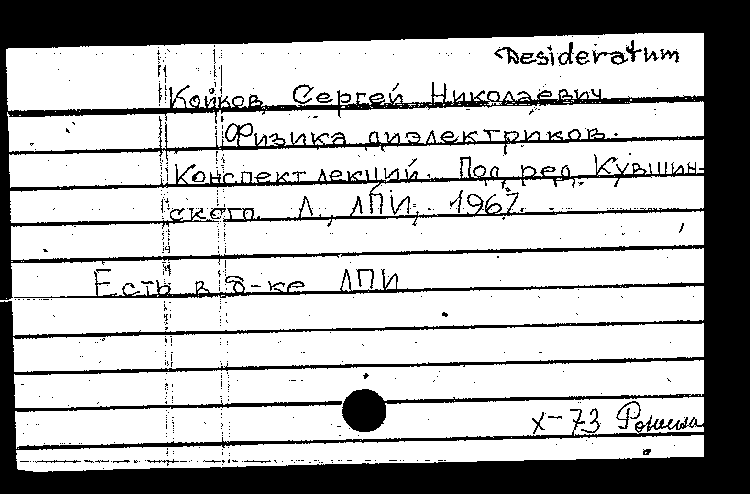 Desideratum
Койков, Сергей Николаевич
Физика диэлектриков.
Конспект лекций. Под ред. Кувшин-
ского. Л., ЛПИ, 1967.
Есть в б-ке ЛПИ
X-73